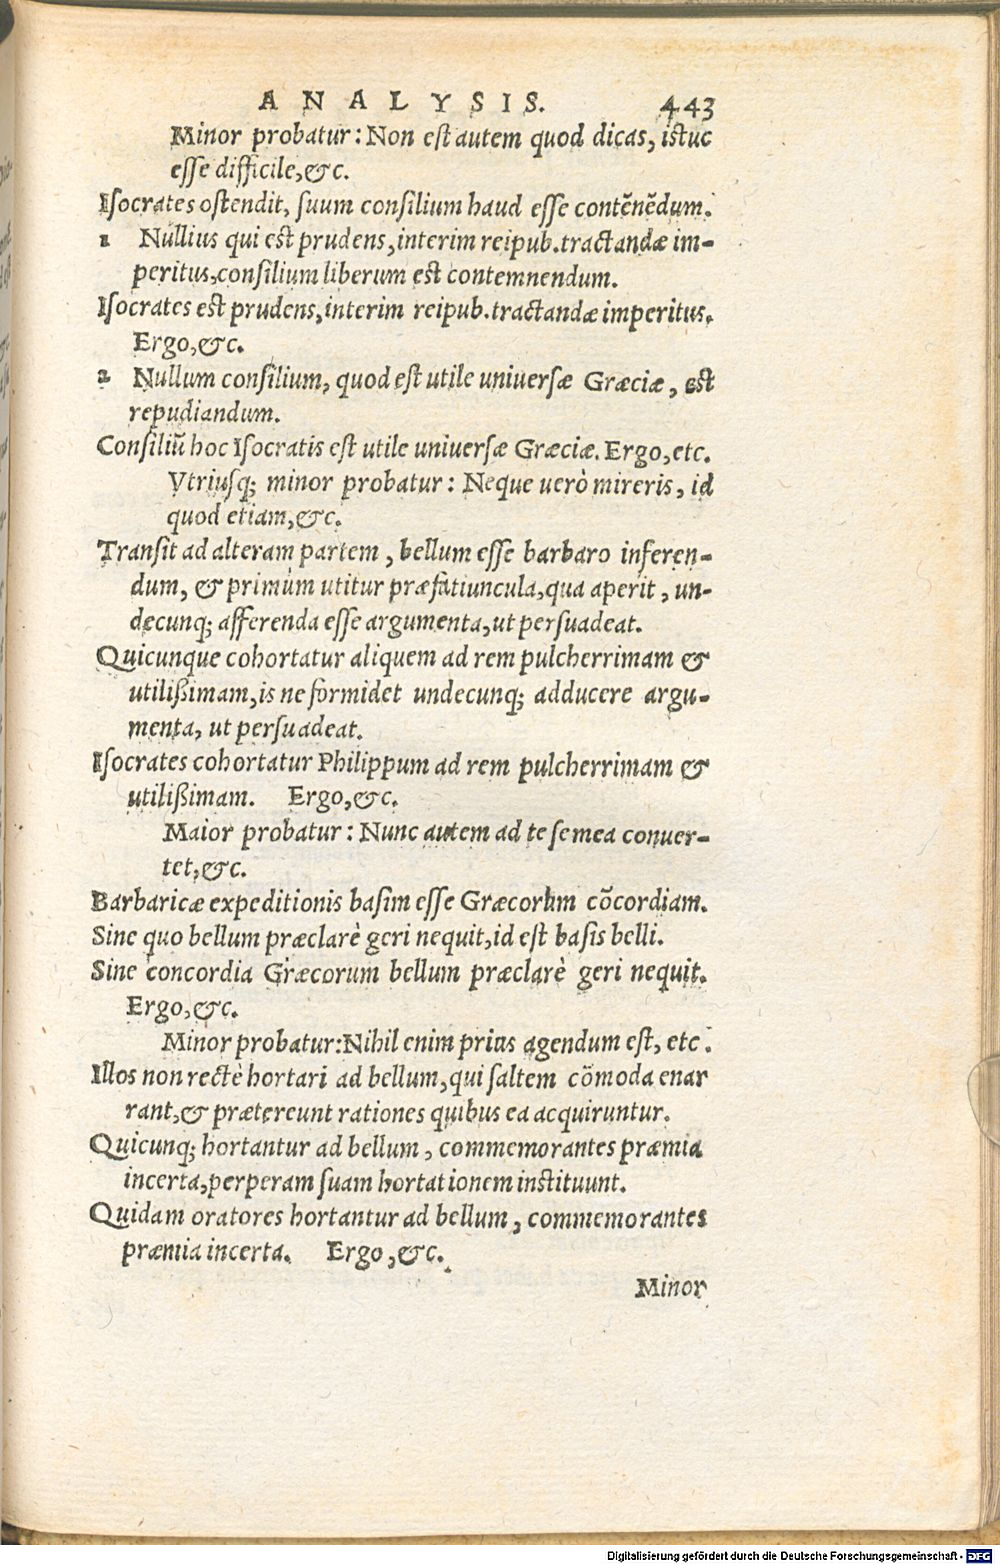 ANALYSIS. 443
Minor probatur: Non est autem quod dicas, istuc
esse difficile, &c.
Isocrates ostendit, suum consilium haud esse contēnēdum.
1 Nullius qui est prudens, interim reipub. tractandæ im-
peritus, consilium liberum est contemnendum.
Isocrates est prudens, interim reipub. tractandæ imperitus.
Ergo, &c.
2 Nullum consilium, quod est utile universæ Græciæ, est
repudiandum.
Consiliū hoc Isocratis est utile universæ Græciæ. Ergo, etc.
Vtriusq; minor probatur: Neque uerò mireris, id
quod etiam, &c.
Transit ad alteram partem, bellum esse barbaro inferen-
dum, & primùm utitur præfatiuncula, qua aperit, un-
decunq; afferenda esse argumenta, ut persuadeat.
Quicunque cohortatur aliquem ad rem pulcherrimam &
utilißimam, is ne formidet undecunq; adducere argu-
menta, ut persuadeat.
Isocrates cohortatur Philippum ad rem pulcherrimam &
utilißimam. Ergo, &c.
Maior probatur: Nunc autem ad te se mea conuer-
tet, &c.
Barbaricæ expeditionis basim esse Græcorum cōcordiam.
Sine quo bellum præclarè geri nequit, id est basis belli.
Sine concordia Græcorum bellum præclarè geri nequit.
Ergo, &c.
Minor probatur: Nihil enim prius agendum est, etc.
Illos non rectè hortari ad bellum, qui saltem cōmoda enar
rant, & prætereunt rationes quibus ea acquiruntur.
Quicunq; hortantur ad bellum, commemorantes præmia
incerta, perperam suam hortationem instituunt.
Quidam oratores hortantur ad bellum, commemorantes
præmia incerta. Ergo, &c.
Minor
Digitalisierung gefördert durch die Deutsche Forschungsgemeinschaft - DFG